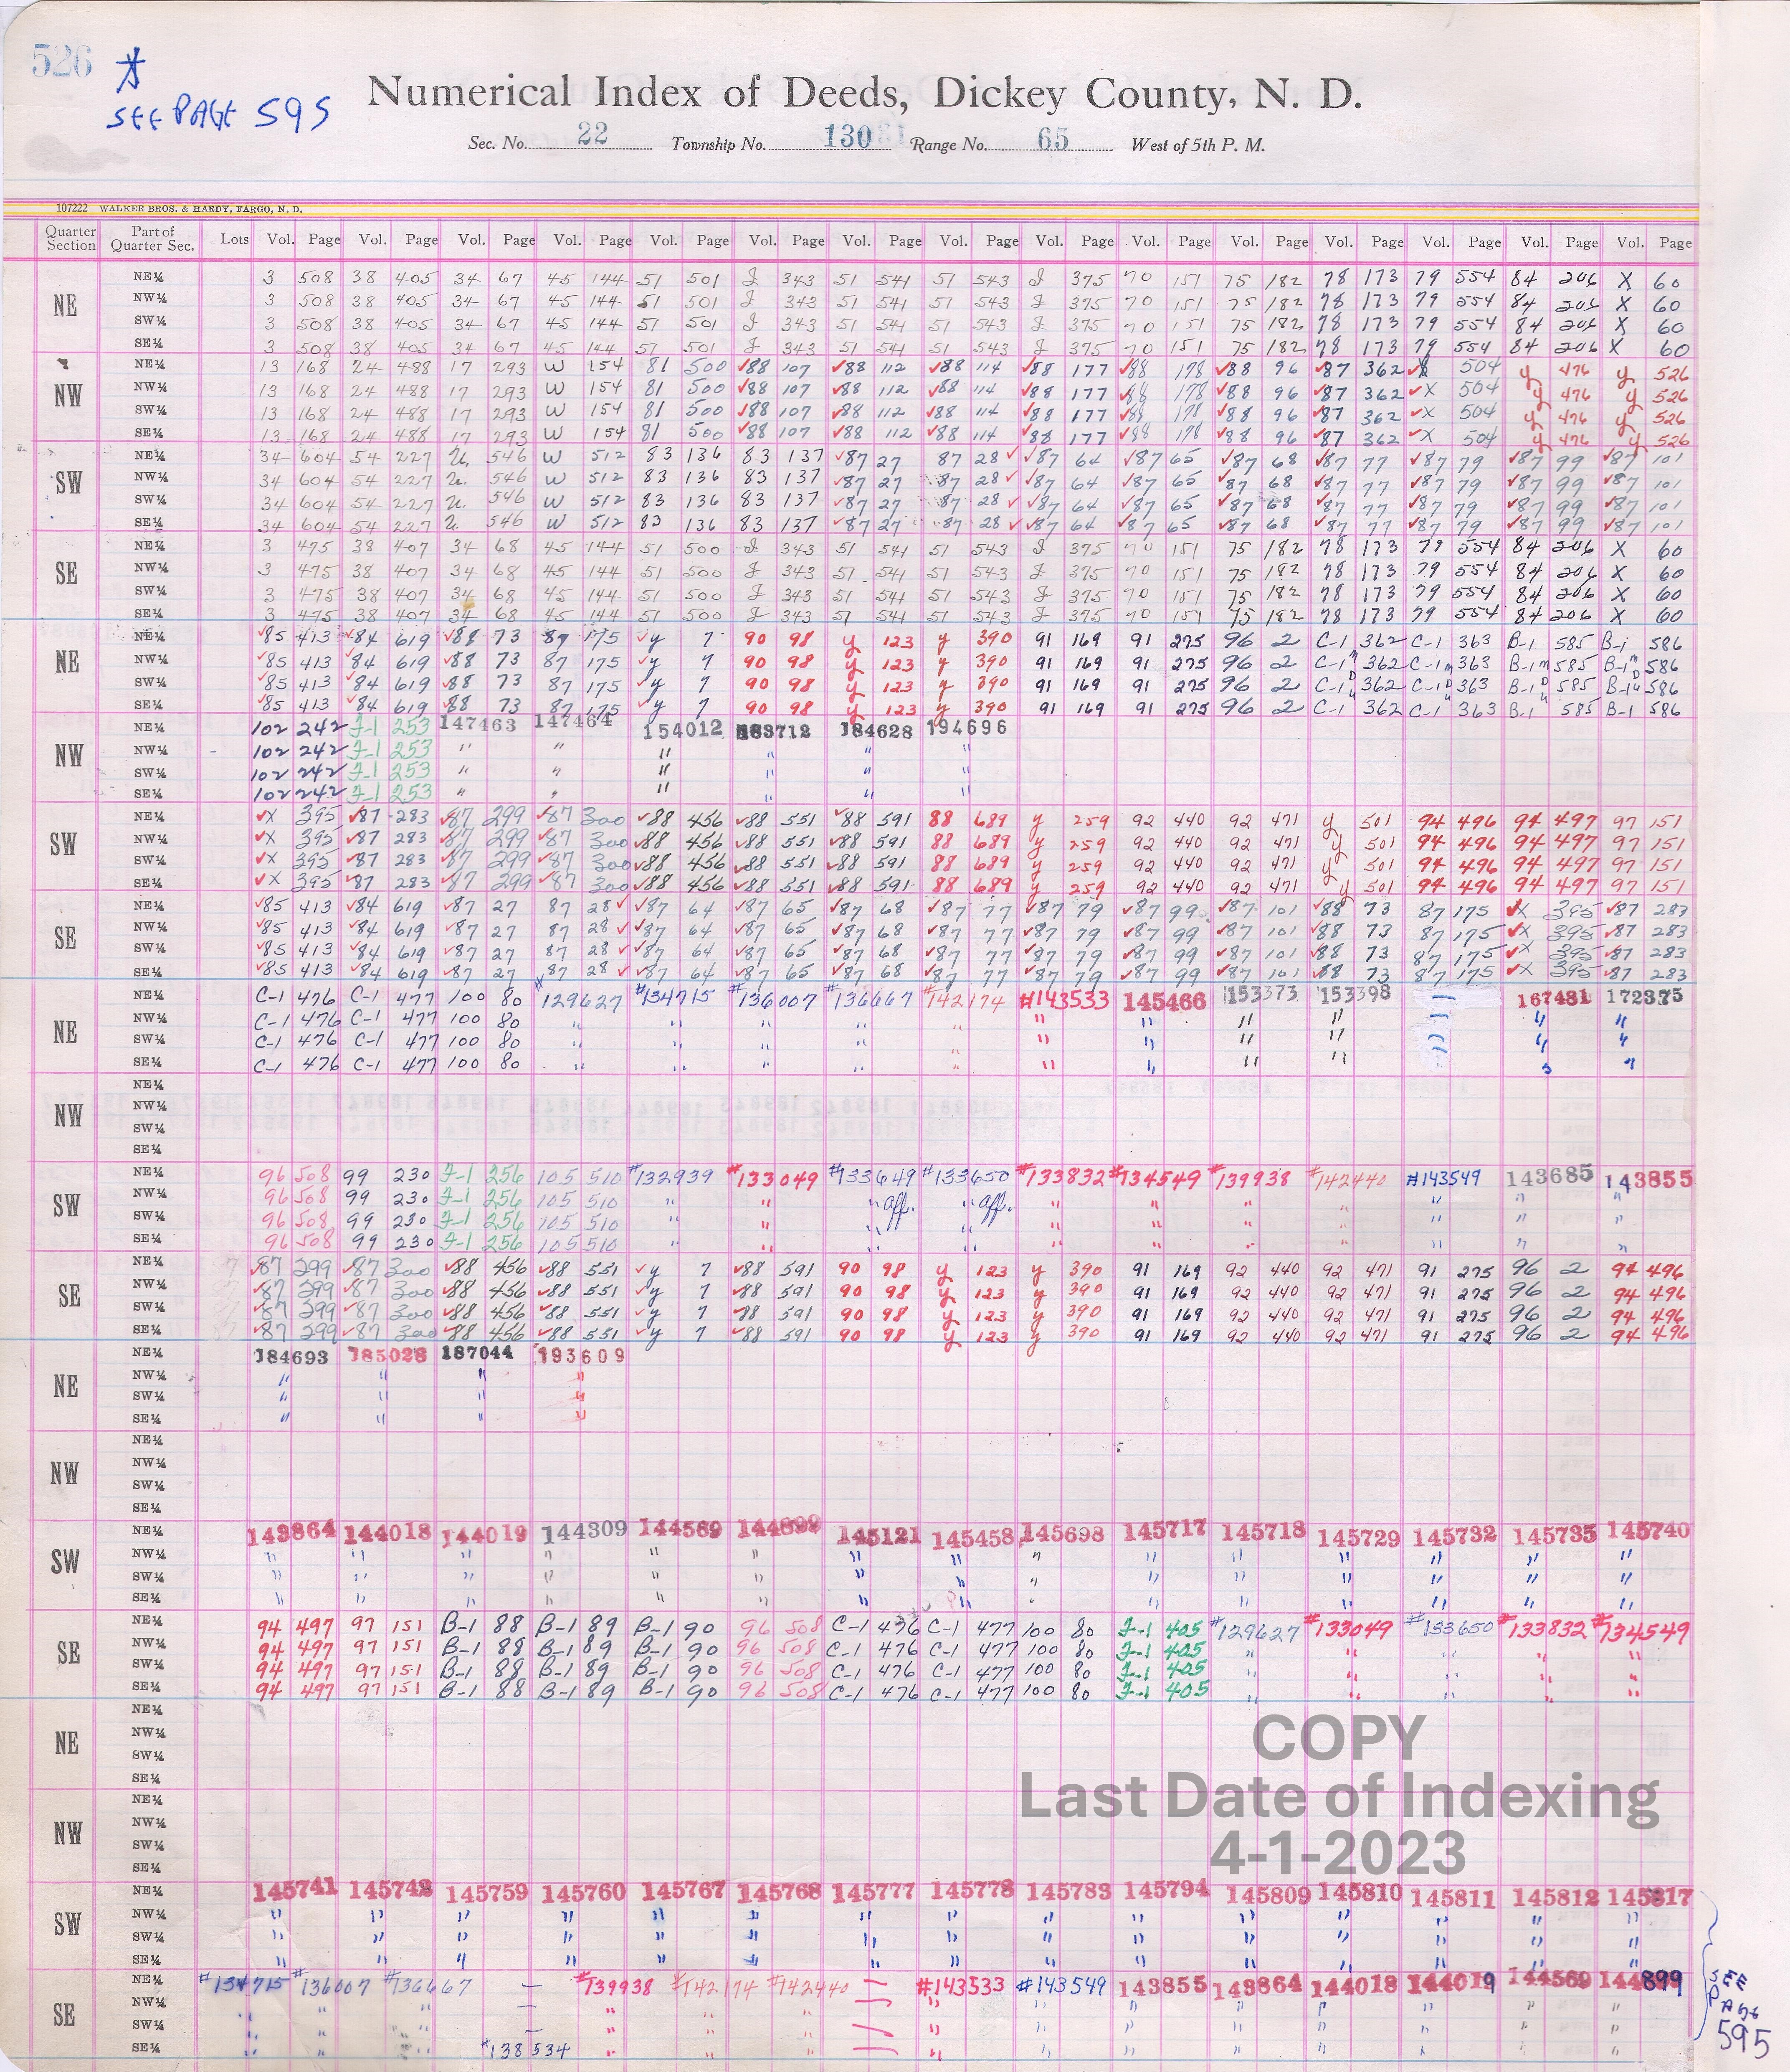 526 *
SEE PAGE 595
Numerical Index of Deeds, Dickey County, N. D.
Sec. No. 22 Township No. 130 Range No. 65 West of 5th P. M.
107222 WALKER BROS. & HARDY, FARGO, N. D.
Quarter Section Part of Quarter Sec. Lots Vol. Page Vol. Page Vol. Page Vol. Page Vol. Page Vol. Page Vol. Page Vol. Page Vol. Page Vol. Page Vol. Page Vol. Page Vol. Page Vol. Page Vol. Page
NE
NE¼ 3 508 38 405 34 67 45 144 51 501 J 343 51 541 51 543 J 375 70 151 75 182 78 173 79 554 84 206 X 60
NW¼ 3 508 38 405 34 67 45 144 51 501 J 343 51 541 51 543 J 375 70 151 75 182 78 173 79 554 84 206 X 60
SW¼ 3 508 38 405 34 67 45 144 51 501 J 343 51 541 51 543 J 375 70 151 75 182 78 173 79 554 84 206 X 60
SE¼ 3 508 38 405 34 67 45 144 51 501 J 343 51 541 51 543 J 375 70 151 75 182 78 173 79 554 84 206 X 60
NW
NE¼ 13 168 24 488 17 293 W 154 81 500 ✓88 107 ✓88 112 ✓88 114 ✓88 177 ✓88 178 ✓88 96 ✓87 362 ✓X 504 y 476 y 526
NW¼ 13 168 24 488 17 293 W 154 81 500 ✓88 107 ✓88 112 ✓88 114 ✓88 177 ✓88 178 ✓88 96 ✓87 362 ✓X 504 y 476 y 526
SW¼ 13 168 24 488 17 293 W 154 81 500 ✓88 107 ✓88 112 ✓88 114 ✓88 177 ✓88 178 ✓88 96 ✓87 362 ✓X 504 y 476 y 526
SE¼ 13 168 24 488 17 293 W 154 81 500 ✓88 107 ✓88 112 ✓88 114 ✓88 177 ✓88 178 ✓88 96 ✓87 362 ✓X 504 y 476 y 526
SW
NE¼ 34 604 54 227 U. 546 W 512 83 136 83 137 ✓87 27 87 28 ✓ ✓87 64 ✓87 65 ✓87 68 ✓87 77 ✓87 79 ✓87 99 ✓87 101
NW¼ 34 604 54 227 U. 546 W 512 83 136 83 137 ✓87 27 87 28 ✓ ✓87 64 ✓87 65 ✓87 68 ✓87 77 ✓87 79 ✓87 99 ✓87 101
SW¼ 34 604 54 227 U. 546 W 512 83 136 83 137 ✓87 27 87 28 ✓ ✓87 64 ✓87 65 ✓87 68 ✓87 77 ✓87 79 ✓87 99 ✓87 101
SE¼ 34 604 54 227 U. 546 W 512 83 136 83 137 ✓87 27 87 28 ✓ ✓87 64 ✓87 65 ✓87 68 ✓87 77 ✓87 79 ✓87 99 ✓87 101
SE
NE¼ 3 475 38 407 34 68 45 144 51 500 J 343 51 541 51 543 J 375 70 151 75 182 78 173 79 554 84 206 X 60
NW¼ 3 475 38 407 34 68 45 144 51 500 J 343 51 541 51 543 J 375 70 151 75 182 78 173 79 554 84 206 X 60
SW¼ 3 475 38 407 34 68 45 144 51 500 J 343 51 541 51 543 J 375 70 151 75 182 78 173 79 554 84 206 X 60
SE¼ 3 475 38 407 34 68 45 144 51 500 J 343 51 541 51 543 J 375 70 151 75 182 78 173 79 554 84 206 X 60
NE
NE¼ ✓85 413 ✓84 619 ✓88 73 87 175 ✓y 7 90 98 y 123 y 390 91 169 91 275 96 2 C-1 362 C-1 363 B-1 585 B-1 586
NW¼ ✓85 413 ✓84 619 ✓88 73 87 175 ✓y 7 90 98 y 123 y 390 91 169 91 275 96 2 C-1 362 C-1 363 B-1 585 B-1 586
SW¼ ✓85 413 ✓84 619 ✓88 73 87 175 ✓y 7 90 98 y 123 y 390 91 169 91 275 96 2 C-1 362 C-1 363 B-1 585 B-1 586
SE¼ ✓85 413 ✓84 619 ✓88 73 87 175 ✓y 7 90 98 y 123 y 390 91 169 91 275 96 2 C-1 362 C-1 363 B-1 585 B-1 586
NW
NE¼ 102 242 F-1 253 147463 147464 154012 184628 194696
NW¼ 102 242 F-1 253 " " " " " "
SW¼ 102 242 F-1 253 " " " " " "
SE¼ 102 242 F-1 253 " " " " " "
SW
NE¼ ✓X 395 ✓87 283 ✓87 299 ✓87 300 ✓88 456 ✓88 551 ✓88 591 88 689 y 259 92 440 92 471 y 501 94 496 94 497 97 151
NW¼ ✓X 395 ✓87 283 ✓87 299 ✓87 300 ✓88 456 ✓88 551 ✓88 591 88 689 y 259 92 440 92 471 y 501 94 496 94 497 97 151
SW¼ ✓X 395 ✓87 283 ✓87 299 ✓87 300 ✓88 456 ✓88 551 ✓88 591 88 689 y 259 92 440 92 471 y 501 94 496 94 497 97 151
SE¼ ✓X 395 ✓87 283 ✓87 299 ✓87 300 ✓88 456 ✓88 551 ✓88 591 88 689 y 259 92 440 92 471 y 501 94 496 94 497 97 151
SE
NE¼ ✓85 413 ✓84 619 ✓87 27 87 28 ✓ ✓87 64 ✓87 65 ✓87 68 ✓87 77 ✓87 79 ✓87 99 ✓87 101 ✓88 73 87 175 ✓X 395 ✓87 283
NW¼ ✓85 413 ✓84 619 ✓87 27 87 28 ✓ ✓87 64 ✓87 65 ✓87 68 ✓87 77 ✓87 79 ✓87 99 ✓87 101 ✓88 73 87 175 ✓X 395 ✓87 283
SW¼ ✓85 413 ✓84 619 ✓87 27 87 28 ✓ ✓87 64 ✓87 65 ✓87 68 ✓87 77 ✓87 79 ✓87 99 ✓87 101 ✓88 73 87 175 ✓X 395 ✓87 283
SE¼ ✓85 413 ✓84 619 ✓87 27 87 28 ✓ ✓87 64 ✓87 65 ✓87 68 ✓87 77 ✓87 79 ✓87 99 ✓87 101 ✓88 73 87 175 ✓X 395 ✓87 283
NE
NE¼ C-1 476 C-1 477 100 80 #129627 #134715 #136007 #136667 #142174 #143533 145466 153373 153398 167481 172375
NW¼ C-1 476 C-1 477 100 80 " " " " " " " " " " "
SW¼ C-1 476 C-1 477 100 80 " " " " " " " " " " "
SE¼ C-1 476 C-1 477 100 80 " " " " " " " " " " "
NW
NE¼
NW¼
SW¼
SE¼
SW
NE¼ 96 508 99 230 F-1 256 105 510 #132939 #133049 #133649 #133650 #133832 #134549 #139938 #142440 #143549 143685 143855
NW¼ 96 508 99 230 F-1 256 105 510 " " " aff. " aff. " " " " " " "
SW¼ 96 508 99 230 F-1 256 105 510 " " " " " " " " " " "
SE¼ 96 508 99 230 F-1 256 105 510 " " " " " " " " " " "
SE
NE¼ ✓87 299 ✓87 300 ✓88 456 ✓88 551 ✓y 7 ✓88 591 90 98 y 123 y 390 91 169 92 440 92 471 91 275 96 2 94 496
NW¼ ✓87 299 ✓87 300 ✓88 456 ✓88 551 ✓y 7 ✓88 591 90 98 y 123 y 390 91 169 92 440 92 471 91 275 96 2 94 496
SW¼ ✓87 299 ✓87 300 ✓88 456 ✓88 551 ✓y 7 ✓88 591 90 98 y 123 y 390 91 169 92 440 92 471 91 275 96 2 94 496
SE¼ ✓87 299 ✓87 300 ✓88 456 ✓88 551 ✓y 7 ✓88 591 90 98 y 123 y 390 91 169 92 440 92 471 91 275 96 2 94 496
NE
NE¼ 184693 185028 187044 193609
NW¼ " " " "
SW¼ " " " "
SE¼ " " " "
NW
NE¼
NW¼
SW¼
SE¼
SW
NE¼ 143864 144018 144019 144309 144569 144899 145121 145458 145698 145717 145718 145729 145732 145735 145740
NW¼ " " " " " " " " " " " " " " "
SW¼ " " " " " " " " " " " " " " "
SE¼ " " " " " " " " " " " " " " "
SE
NE¼ 94 497 97 151 B-1 88 B-1 89 B-1 90 96 508 C-1 476 C-1 477 100 80 F-1 405 #129627 #133049 #133650 #133832 #134549
NW¼ 94 497 97 151 B-1 88 B-1 89 B-1 90 96 508 C-1 476 C-1 477 100 80 F-1 405 " " " " "
SW¼ 94 497 97 151 B-1 88 B-1 89 B-1 90 96 508 C-1 476 C-1 477 100 80 F-1 405 " " " " "
SE¼ 94 497 97 151 B-1 88 B-1 89 B-1 90 96 508 C-1 476 C-1 477 100 80 F-1 405 " " " " "
NE
NE¼
NW¼
SW¼
SE¼
COPY
Last Date of Indexing
4-1-2023
NW
NE¼
NW¼
SW¼
SE¼
SW
NE¼ 145741 145742 145759 145760 145767 145768 145777 145778 145783 145794 145809 145810 145811 145812 145817
NW¼ " " " " " " " " " " " " " " "
SW¼ " " " " " " " " " " " " " " "
SE¼ " " " " " " " " " " " " " " "
SE
NE¼ #134715 #136007 #136667 — #139938 #142174 #142440 #143533 #143549 143855 143864 144018 144019 144569 144899
NW¼ " " " — " " " " " " " " " " "
SW¼ " " " — " " " " " " " " " " "
SE¼ " " " #138534 " " " " " " " " " " "
SEE
PAGE
595